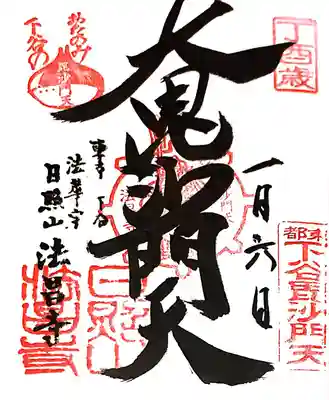 丁酉歳
一月六日
東都
下谷毘沙門天
大毘沙門天
東京下谷
法華宗
日照山 法昌寺
毘沙門天
下谷の